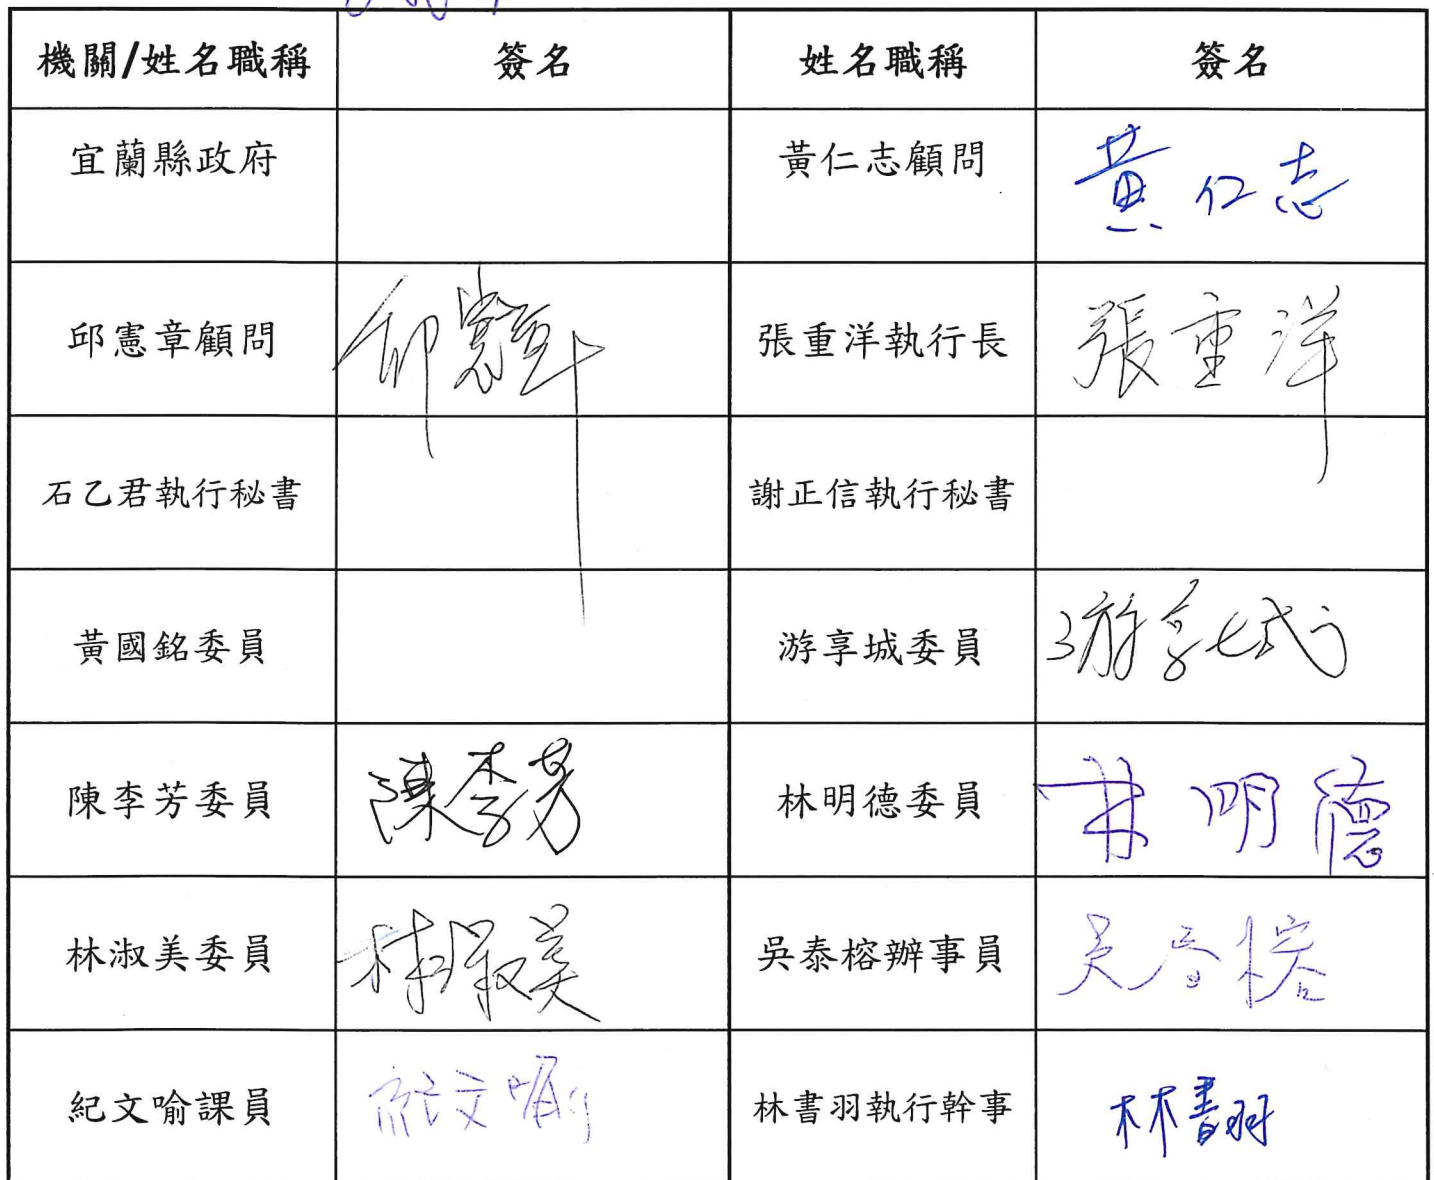 機關/姓名職稱 簽名 姓名職稱 簽名
宜蘭縣政府 黃仁志顧問 黃仁志
邱憲章顧問 邱憲章 張重洋執行長 張重洋
石乙君執行秘書 謝正信執行秘書
黃國銘委員 游享城委員 游享城
陳李芳委員 陳李芳 林明德委員 林明德
林淑美委員 林淑美 吳泰榕辦事員 吳泰榕
紀文喻課員 紀文喻 林書羽執行幹事 林書羽